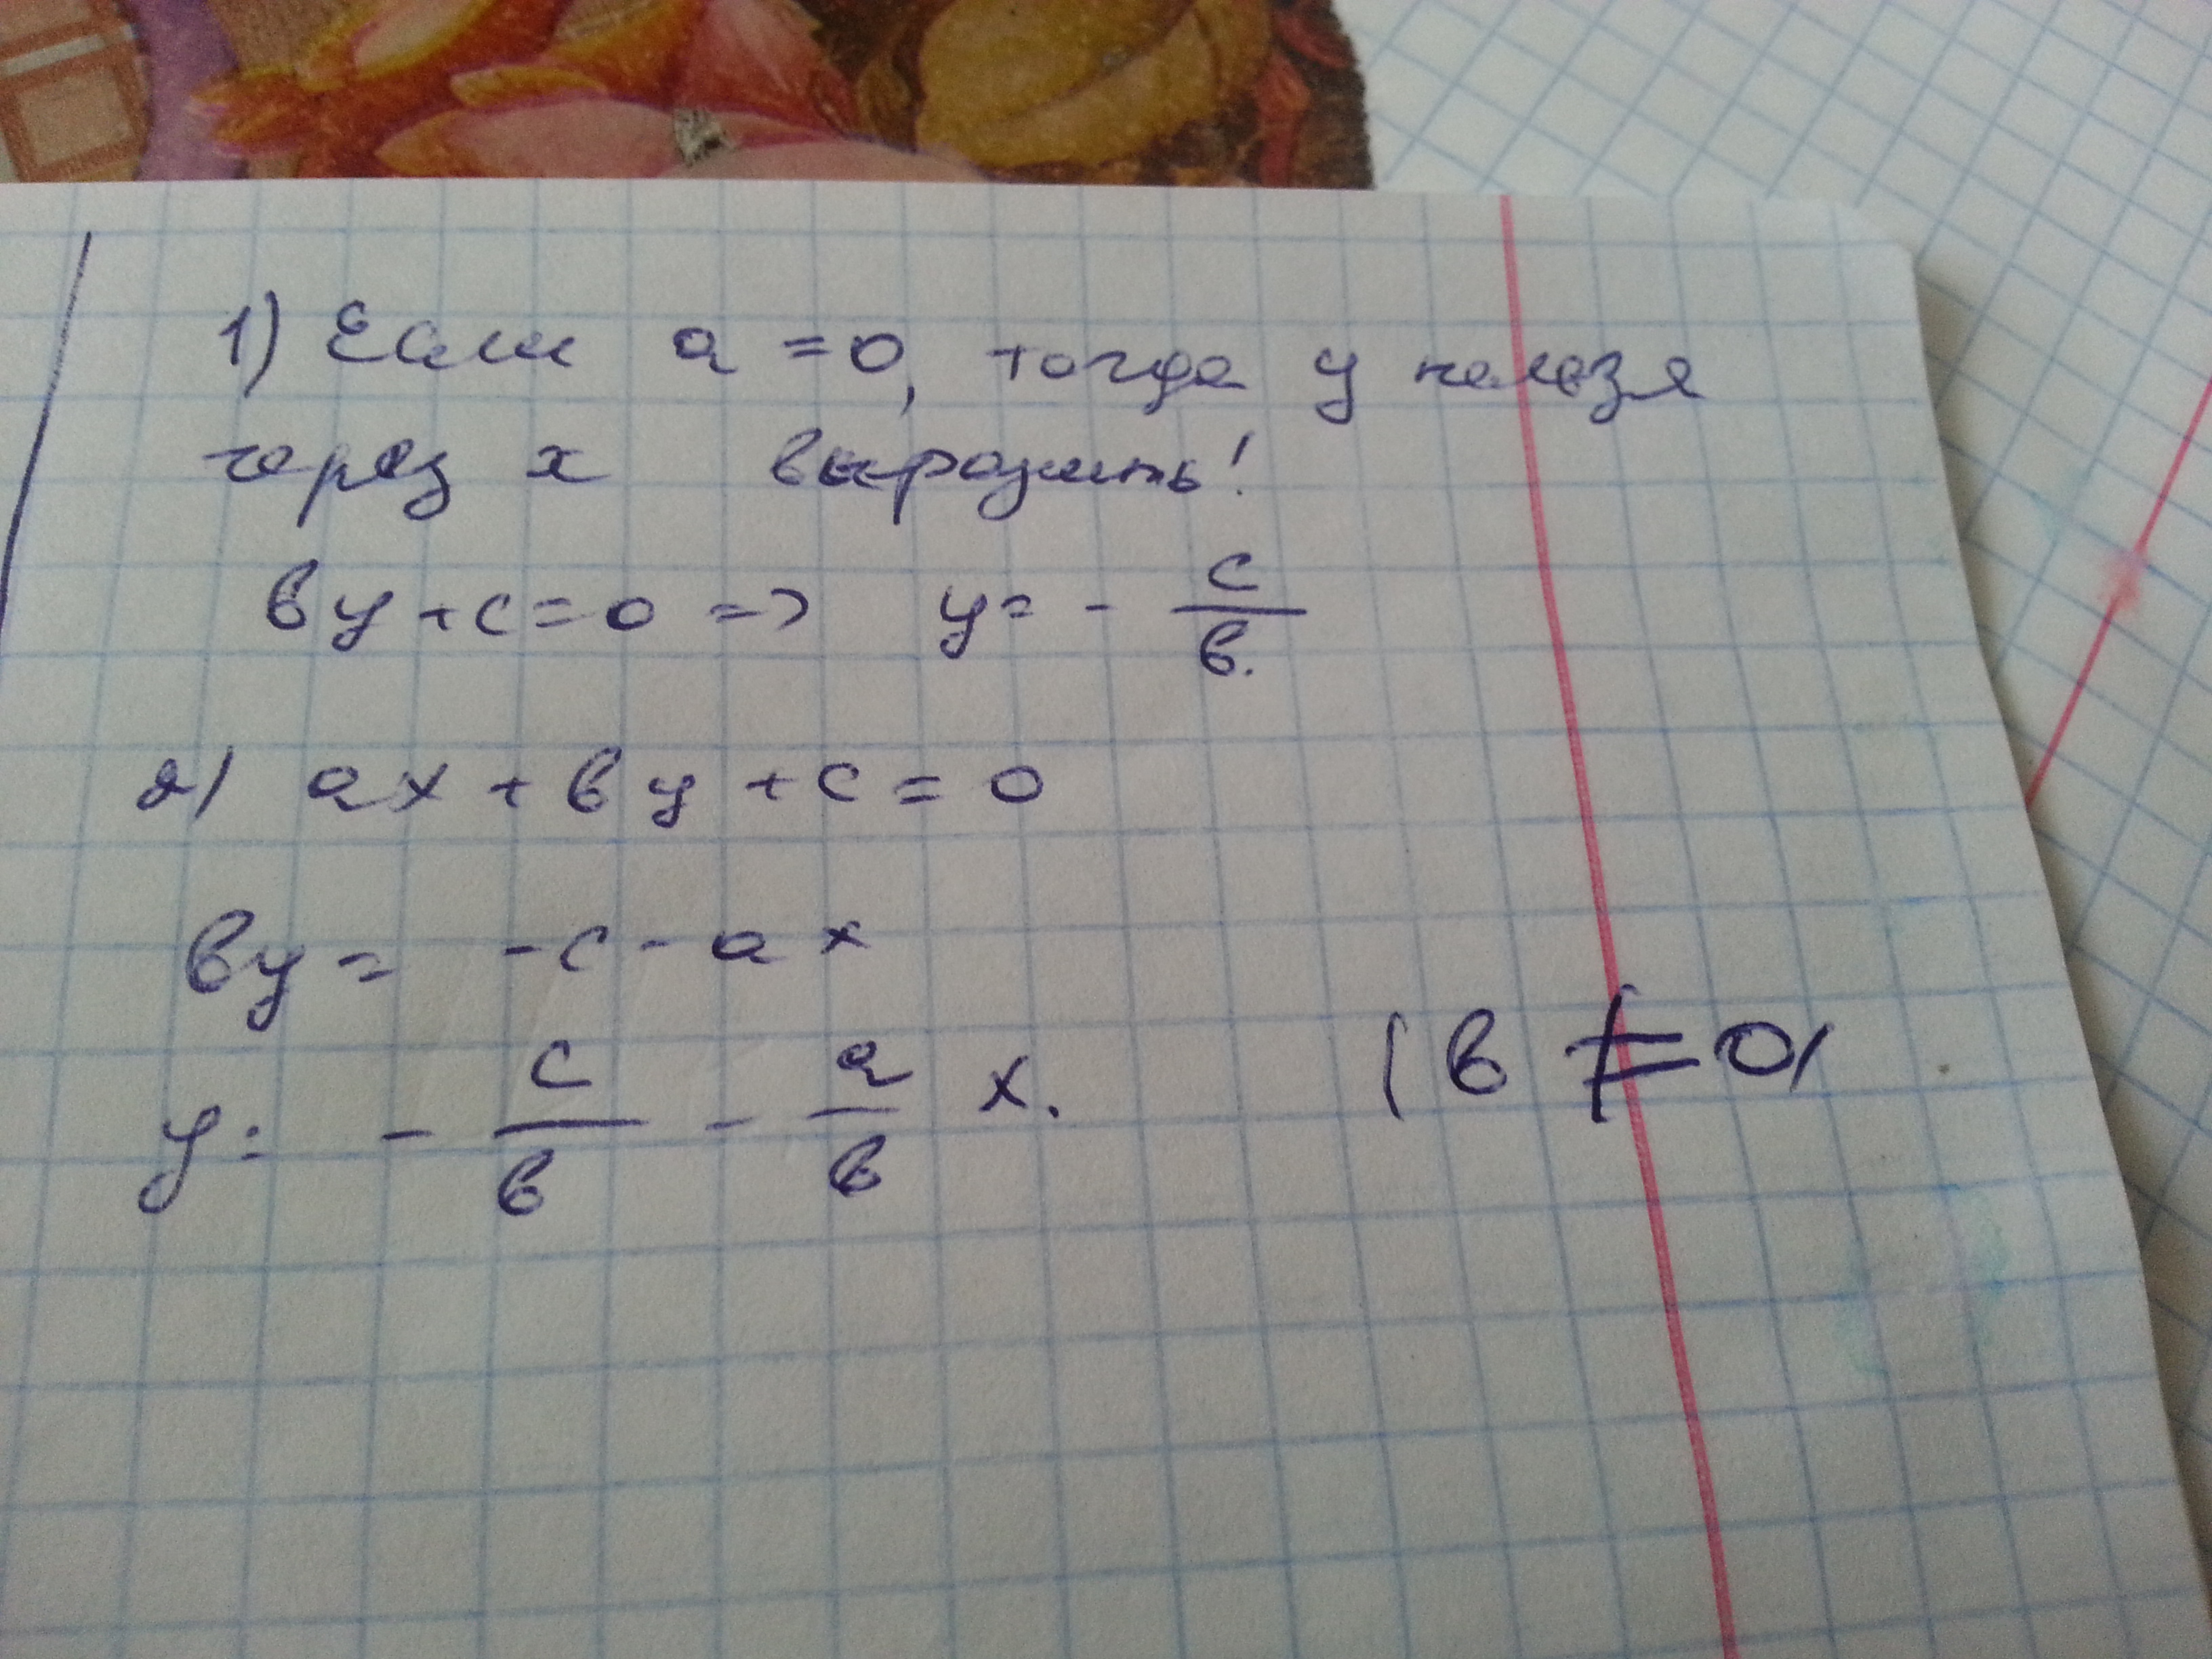 1) Если a = 0, тогда y нельзя
через x выразить!
вy + c = 0 => y = - c/в.
2) ax + вy + c = 0
вy = -c - ax
y = - c/в - a/в x. (в ≠ 0)